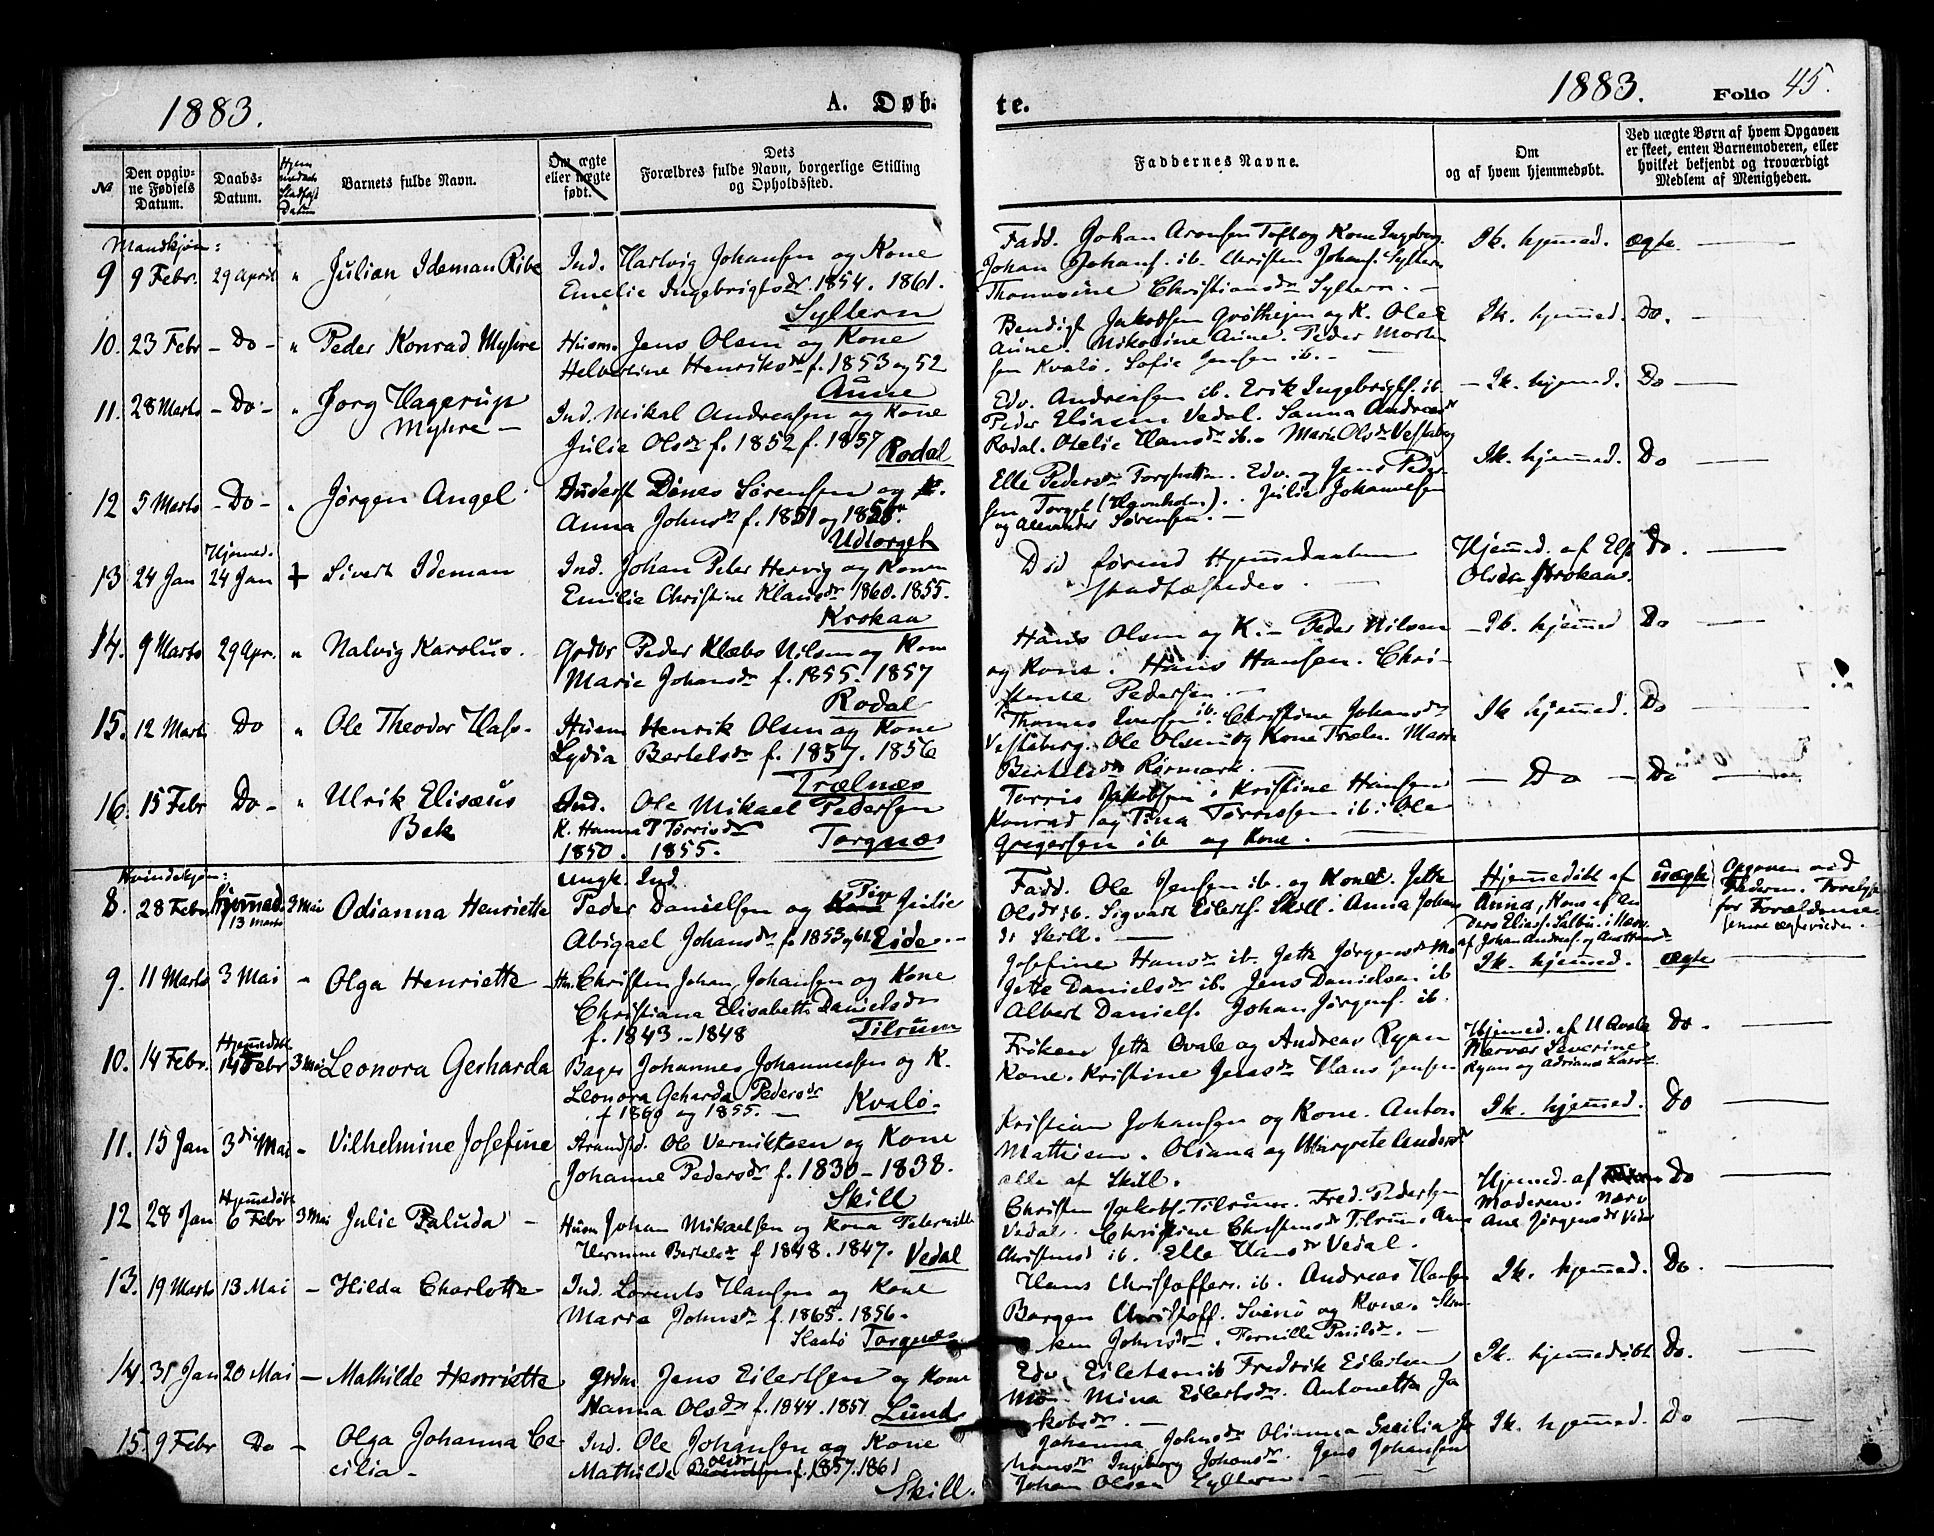 1883.
A. Døb-
te.
1883.
Folio 45.
№
Den opgiv-
ne Fødsels
Datum.
Daabs-
Datum.
Barnets fulde Navn.
Om ægte
eller uægte
født.
Dets
Forældres fulde Navn, borgerlige Stilling
og Opholdssted.
Faddernes Navne.
Om
og af hvem hjemmedøbt.
Ved uægte Børn af hvem Opgaven
er skeet, enten Barnemoderen, eller
hvilket bekjendt og troværdigt
Medlem af Menigheden.
Mandkjøn:
9 9 Febr. 29 April " Julian Ideman Ribe
Ind. Hartvig Johansen og Kone
Emelie Ingebrigtsdr 1854. 1861.
Syltern
Fadd. Johan Aronsen Toft og Kone Ingeborg.
Johan Johans. ib. Christen Johans. Syltern
Thomasine Christiansdr Syltern. -
Ik. hjemmed. ægte.
10. 23 Febr - Do - " Peder Konrad Myhre
Husm. Jens Olsen og Kone
Helvertine Henriksdr f. 1853 og 52
Aune
Bendigt Jakobsen og K. Olea
Aune. Nikoline Aune. Peder Morten
sen Kvalø. Sofie Jensen ib. -
Ik. hjemmed. Do.
11. 28 Marts - Do - " Jorg Hagerup
Myhre -
Ind. Mikal Andreasen og Kone
Julie Olsdr f. 1852 f. 1857 Rodal
Edv. Andreasen ib. Erik Ingebrigts. ib.
Peder Vedal. Sanna Andreasdr
Rodal. Otelie Hansdr ib. Marie Olsdr
- Ik. hjemmed. Do
12 5 Marts - Do - " Jørgen Angel
Dines Sørensen og K.
Anna Johnsdr f. 1851 og
Udtorget
Elle Pedersdr Torghatten. Edv. og Jens Peder
sen Torget (Havnholm). Julie Johannesen
og Alexander Sørensen. -
Ik. hjemmed. Do
13 24 Jan Hjemmed.
24 Jan + Sivert Ideman
Ind. Johan Peter Hervig og Konen
Emilie Christine Klausdr 1860. 1855.
Krokaa
Død førend Hjemmedaaben
stadfæstedes.
Hjemmed. af
Olsen Krokaa. Do.
14. 9 Marts 29 Apr. " Nalvig Karolus.
Grdbr Peder Klæbo Nilsen og Kone
Marie Johansdr f. 1855. 1857
Rodal
Hans Olsen og K. - Peder Nilsen
og Kone. Hans Hansen. Chri-
stense Pedersen. -
- Ik. hjemmed Do
15. 12 Marts Do " Ole Theodor Hals.
Husm Henrik Olsen og Kone
Lydia Bertelsdr f. 1857. 1856
Trælnæs
Thomas Iversen ib. Christine Johansdr
Vestaberg. Ole Olsen og Kone Træln. Maren
Bertelsdr Rørmark. -
Ik hjemmed. Do
16. 15 Febr Do - " Ulrik Elisæus
Bek
Ind. Ole Mikael Pedersen
K. Hanna P Tørrisdr
1850. 1855. Torgnæs
Torris Jakobsen. Kristine Hansen
Konrad og Tina Tørrissen ib. Ole
Gregersen ib og Kone.
- Do - Do
Kvindekjøn:
8. 28 Febr. Hjemmed.
13 Marts 3 Mai Odianna Henriette
Ungk. Ind.
Peder Danielsen og Pige Julie
Abigael Johansdr f. 1853 og 61 Eide. -
Fadd. Ole Jensen ib. og Kone. Jette
Olsdr ib. Sigvart Eilerts. Skill. Anna Johans
dr Skill. -
Hjemmedøbt af
Anna, Kone af An
ders Elias. Salbu. i Nærv.
af Johan Andreas. og
uægte
Opgaven ved
Faderen.
for Forældrenes
senere
9. 11 Marts 3 Mai - Olga Henriette
Hm. Christen Johan Johansen og Kone
Christiana Elisabeth Danielsdr
f. 1843 - 1848 Tilrum
Josefine Hansdr ib. Jetta Jørgensdr Mo
Jette Danielsdr ib. Jens Danielsen ib
Albert Daniels. Johan Jørgens. ib.
Ik. hjemmed. ægte
10. 14 Febr. Hjemmedøbt
14 Febr 3 Mai Leonora Gerharda
Bager Johannes Johannessen og K.
Leonora Geharda Pedersdr
f 1860 og 1855. - Kvalø.
Frøken Jetta Qvale og Andreas Ryan
Kone. Kristine Jensdr Hans Jensen
Hjemmed. af U Qvale
Nærvær Severine
Ryan og Adriane
Do.
11. 15 Jan 3die Mai - Vilhelmine Josefine
Strandsd. Ole Verniksen og Kone
Johanne Pedersdr f. 1830 - 1838.
Skill
Kristian Johansen og Kone. Anton
Mathisen. Oliana og Margrete Andersdr
alle af Skill.
Ik. hjemmed. Do
12 28 Jan Hjemmedøbt
6 Febr 3 Mai Julie Paluda -
Husm Johan Mikaelsen og Kona Peternille
Hermine Bertelsdr f 1848. 1847. Vedal
Christen Jakobs. Tilrum. Fred. Pedersen
Vedal. Christine Christensdr Tilrum. Ane
Christensd ib. Elle Hansdr Vedal.
Hjemmed. af
Moderen. Nærv
Ane Jørgensdr Vedal
Do
13. 19 Marts 13 Mai - Hilda Charlotte
Ind. Lorents Hansen og Kone
Marra Johnsdr f. 1865. 1856.
Slaatø Torgnæs
Hans Christoffers. ib. Andreas Hansen
Borgen Christoff. Svenø og Kone.
Johnsdr. Pernille Paulsdr. -
Ik. hjemmed. Do.
14. 31 Jan 20 Mai - Mathilde Henriette
Grdm. Jens Eilertsen og Kone
Hanna Olsdr f. 1844. 1851 Lund
Edv. Eilertsen ib Fredrik Eilertsen
Mo. Mina Eilertsdr. Antonetta Ja
kobsdr. -
Ik. hjemmedøbt Do.
15. 9 Febr Do - Olga Johanna Ce
cilia -
Ind. Ole Johansen og Kone
Mathilde Olsdr f. 1857. 1861
Skill.
Johanna Johnsdr Olianna Cecilia Jo
hansdr Ingeborg Johansdr. Jens Johansen
Johan Olsen Syltern. -
Ik. hjemmed. Do